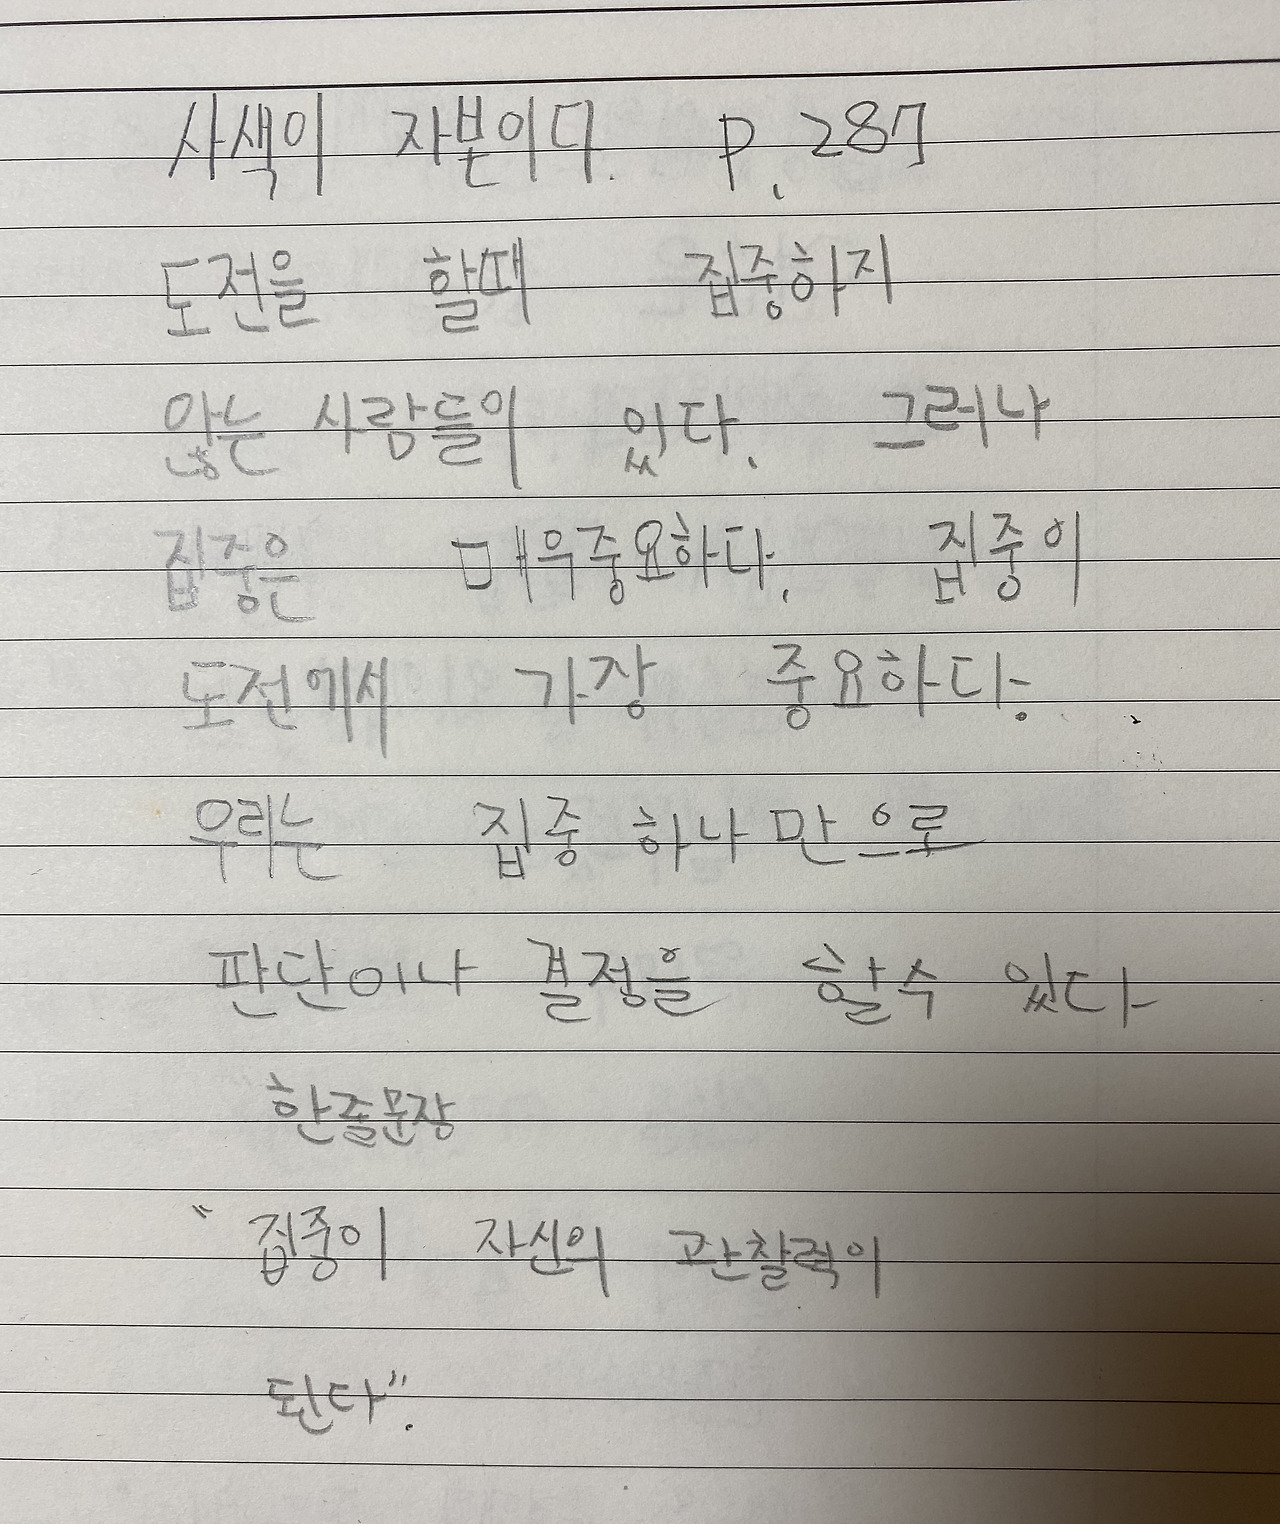 사색이 자본이다. P. 287
도전을 할때 집중하지
않는 사람들이 있다. 그러나
집중은 매우중요하다. 집중이
도전에서 가장 중요하다.
우리는 집중 하나만으로
판단이나 결정을 할수 있다
한줄문장
"집중이 자신의 관찰력이
된다".